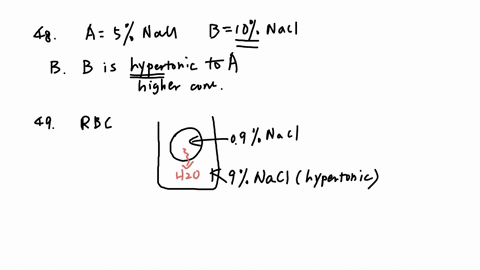 48. A = 5% NaCl B = 10% NaCl
B. B is hypertonic to A
higher conc.
49. RBC
0.9% NaCl
H2O
9% NaCl (hypertonic)